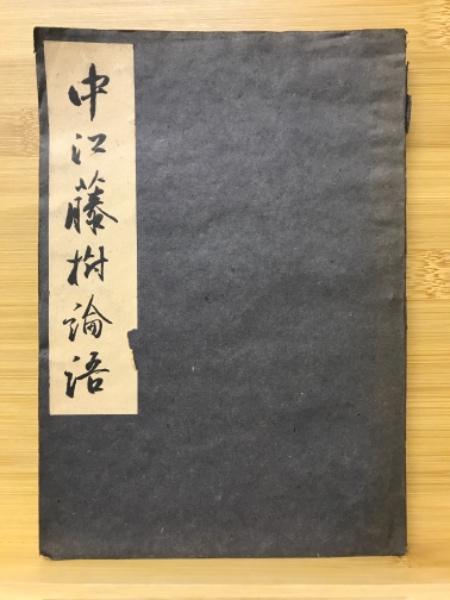 中江藤樹論語